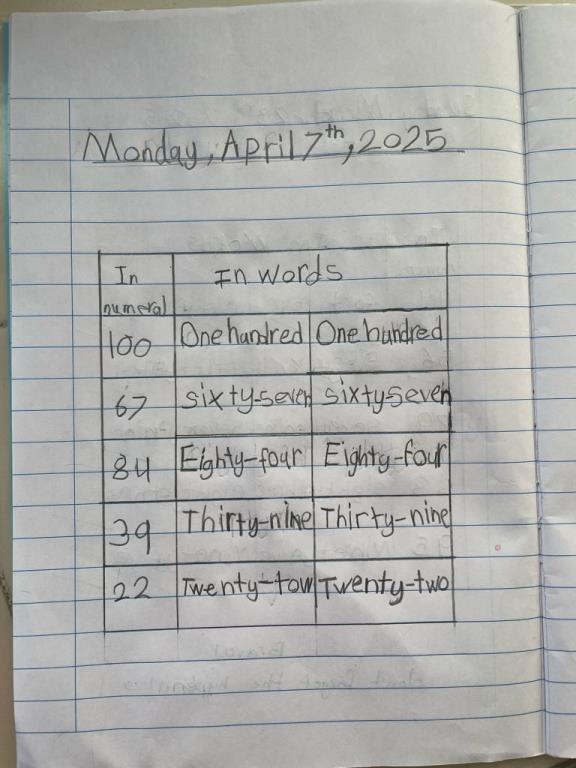 Monday, April 7th, 2025
In numeral In words
100 One handred One hundred
67 sixty-seven sixty-seven
84 Eighty-four Eighty-four
39 Thirty-nine Thirty-nine
22 Twenty-tow Twenty-two